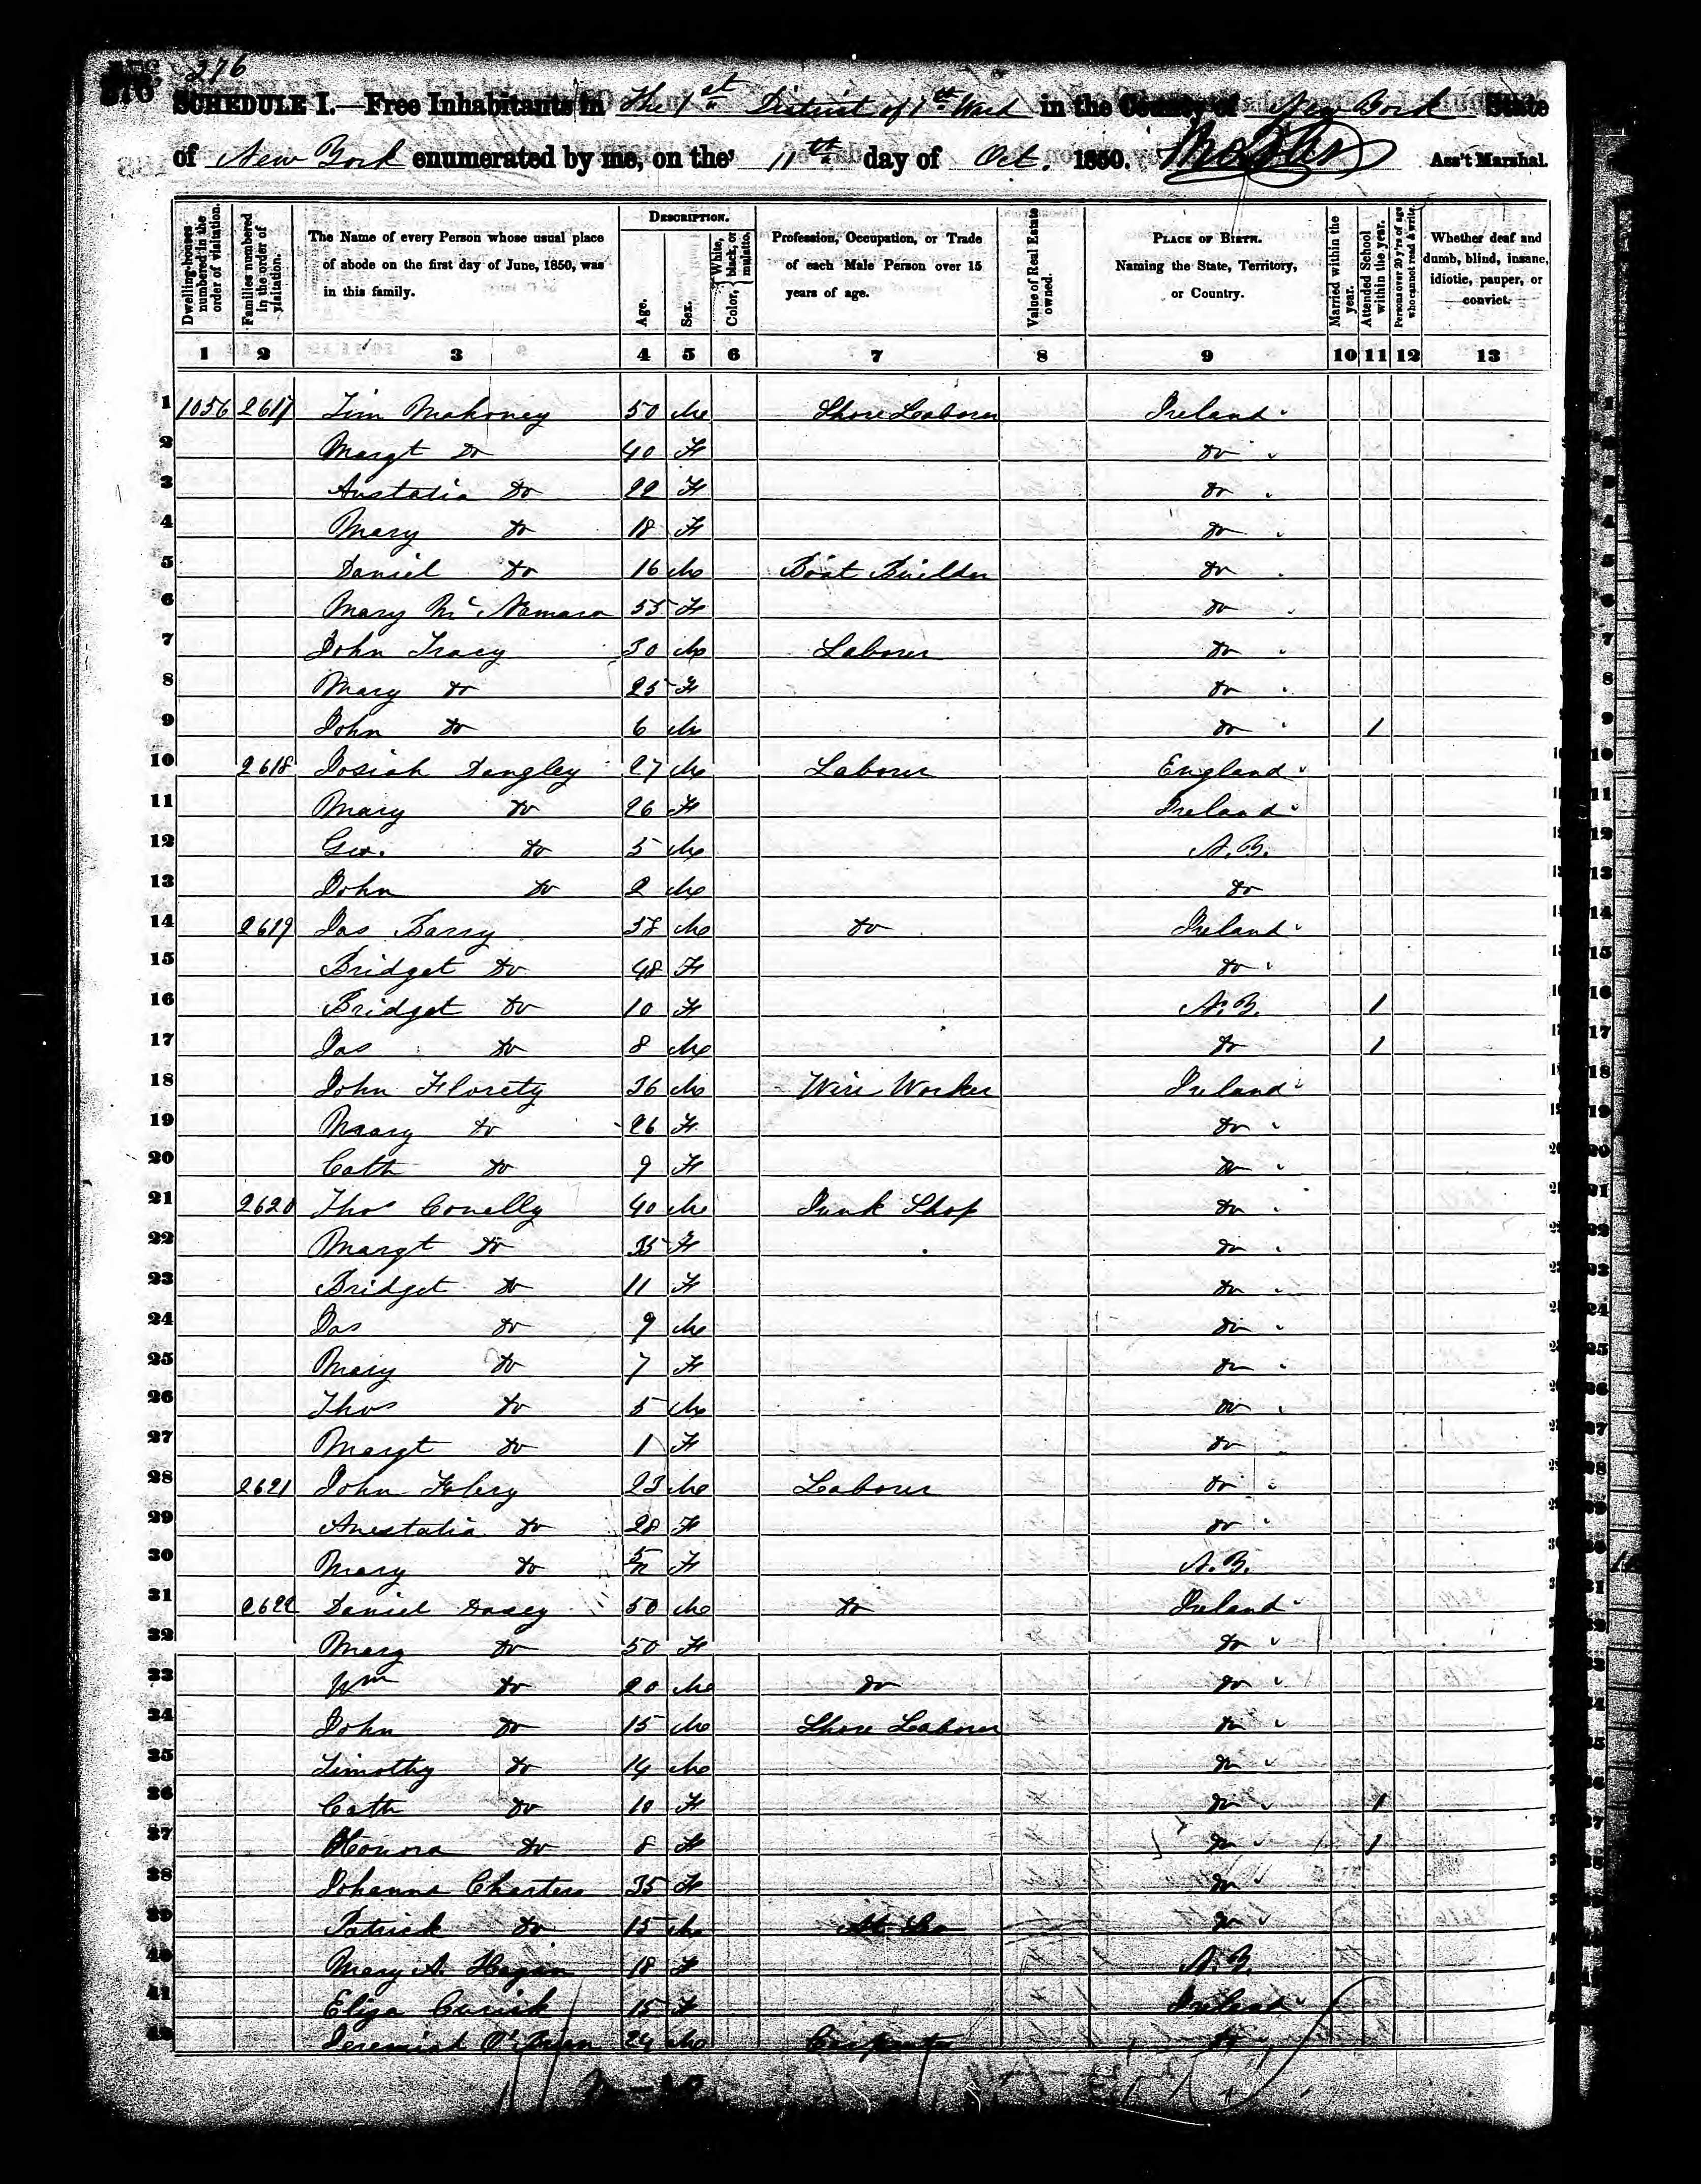 276
SCHEDULE I.—Free Inhabitants in The 1st District of 1st Ward in the County of New York State
of New York enumerated by me, on the 11th day of Oct. 1850. Ass't Marshal.
Dwelling-houses numbered in the order of visitation.
Families numbered in the order of visitation.
The Name of every Person whose usual place of abode on the first day of June, 1850, was in this family.
DESCRIPTION.
Age.
Sex.
Color, White, black, or mulatto.
Profession, Occupation, or Trade of each Male Person over 15 years of age.
Value of Real Estate owned.
PLACE OF BIRTH. Naming the State, Territory, or Country.
Married within the year.
Attended School within the year.
Persons over 20 y'rs of age who cannot read & write.
Whether deaf and dumb, blind, insane, idiotic, pauper, or convict.
1 2 3 4 5 6 7 8 9 10 11 12 13
1 1056 2617 Tim Mahoney 50 M Shore Laborer Ireland
2 Margt do 40 F do
3 Anstatia do 22 F do
4 Mary do 18 F do
5 Daniel do 16 M Boat Builder do
6 Mary McNamara 55 F do
7 John Tracy 30 M Laborer do
8 Mary do 25 F do
9 John do 6 M do 1
10 2618 Josiah Dangley 27 M Laborer England
11 Mary do 26 F Ireland
12 Geo. do 5 M N.Y.
13 John do 2 M do
14 2619 Jas Barry 38 M do Ireland
15 Bridget do 48 F do
16 Bridget do 10 F N.Y. 1
17 Jas do 8 M do 1
18 John Florety 36 M Wire Worker Ireland
19 Mary do 26 F do
20 Cath do 9 F do
21 2620 Thos Conelly 40 M Junk Shop do
22 Margt do 35 F do
23 Bridget do 11 F do
24 Jas do 9 M do
25 Mary do 7 F do
26 Thos do 5 M do
27 Margt do 1 F do
28 2621 John Foley 23 M Laborer do
29 Anestatia do 28 F do
30 Mary do F N.Y.
31 2622 Daniel Dacey 50 M do Ireland
32 Mary do 50 F do
33 Wm do 20 M do do
34 John do 15 M Shore Laborer do
35 Timothy do 14 M do
36 Cath do 10 F do 1
37 Honora do 8 F do 1
38 Johanna Charters 35 F do
39 Patrick do 15 M do
40 Mary A. Hagan 18 F N.Y.
41 Eliza Cusick 15 F Ireland
42 Jeremiah O'Brien 24 M Carpenter do